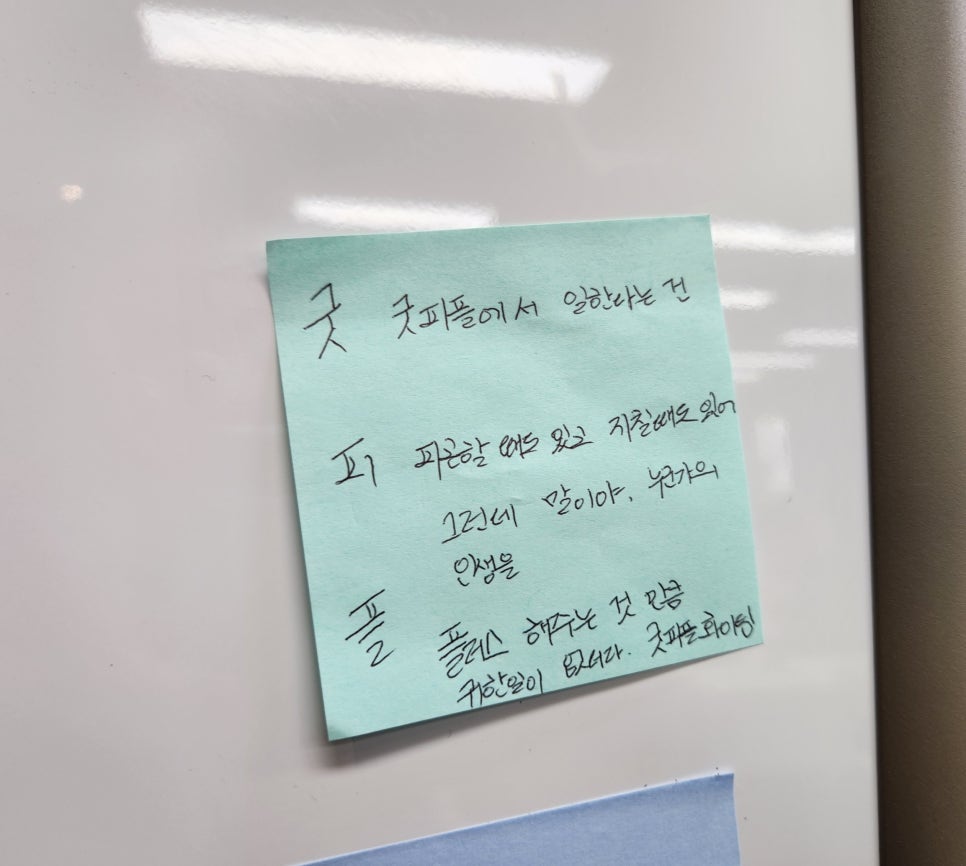 굿 굿피플에서 일한다는 건
피 피곤할 때도 있고 지칠때도 있어
그런데 말이야, 누군가의
인생을
플 플러스 해주는 것 만큼
귀한일이 없더라. 굿피플 화이팅!